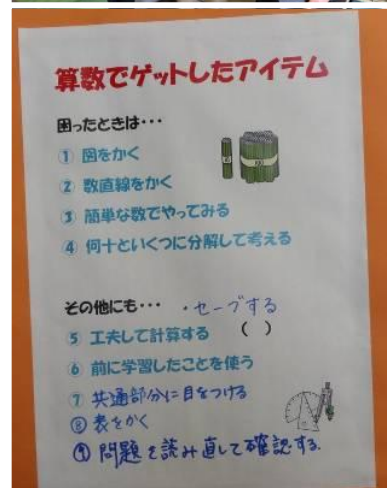 算数でゲットしたアイテム
困ったときは・・・
① 図をかく
② 数直線をかく
③ 簡単な数でやってみる
④ 何十といくつに分解して考える
その他にも・・・ ・セーブする
⑤ 工夫して計算する ( )
⑥ 前に学習したことを使う
⑦ 共通部分に目をつける
⑧ 表をかく
⑨ 問題を読み直して確認する.